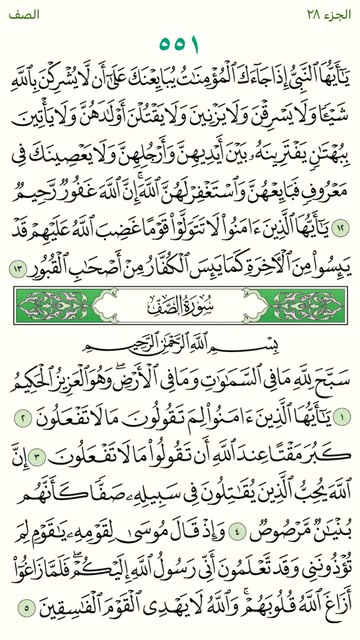 الجزء ٢٨
الصف
٥٥١
يَٰٓأَيُّهَا ٱلنَّبِيُّ إِذَا جَآءَكَ ٱلْمُؤْمِنَٰتُ يُبَايِعْنَكَ عَلَىٰٓ أَن لَّا يُشْرِكْنَ بِٱللَّهِ
شَيْـًٔا وَلَا يَسْرِقْنَ وَلَا يَزْنِينَ وَلَا يَقْتُلْنَ أَوْلَٰدَهُنَّ وَلَا يَأْتِينَ
بِبُهْتَٰنٍ يَفْتَرِينَهُۥ بَيْنَ أَيْدِيهِنَّ وَأَرْجُلِهِنَّ وَلَا يَعْصِينَكَ فِى
مَعْرُوفٍ فَبَايِعْهُنَّ وَٱسْتَغْفِرْ لَهُنَّ ٱللَّهَ ۖ إِنَّ ٱللَّهَ غَفُورٌ رَّحِيمٌ
١٢ يَٰٓأَيُّهَا ٱلَّذِينَ ءَامَنُوا۟ لَا تَتَوَلَّوْا۟ قَوْمًا غَضِبَ ٱللَّهُ عَلَيْهِمْ قَدْ
يَئِسُوا۟ مِنَ ٱلْءَاخِرَةِ كَمَا يَئِسَ ٱلْكُفَّارُ مِنْ أَصْحَٰبِ ٱلْقُبُورِ ١٣
سُورَةُ الصَّفِّ
بِسْمِ ٱللَّهِ ٱلرَّحْمَٰنِ ٱلرَّحِيمِ
سَبَّحَ لِلَّهِ مَا فِى ٱلسَّمَٰوَٰتِ وَمَا فِى ٱلْأَرْضِ ۖ وَهُوَ ٱلْعَزِيزُ ٱلْحَكِيمُ
١ يَٰٓأَيُّهَا ٱلَّذِينَ ءَامَنُوا۟ لِمَ تَقُولُونَ مَا لَا تَفْعَلُونَ ٢
كَبُرَ مَقْتًا عِندَ ٱللَّهِ أَن تَقُولُوا۟ مَا لَا تَفْعَلُونَ ٣ إِنَّ
ٱللَّهَ يُحِبُّ ٱلَّذِينَ يُقَٰتِلُونَ فِى سَبِيلِهِۦ صَفًّا كَأَنَّهُم
بُنْيَٰنٌ مَّرْصُوصٌ ٤ وَإِذْ قَالَ مُوسَىٰ لِقَوْمِهِۦ يَٰقَوْمِ لِمَ
تُؤْذُونَنِى وَقَد تَّعْلَمُونَ أَنِّى رَسُولُ ٱللَّهِ إِلَيْكُمْ ۖ فَلَمَّا زَاغُوٓا۟
أَزَاغَ ٱللَّهُ قُلُوبَهُمْ ۚ وَٱللَّهُ لَا يَهْدِى ٱلْقَوْمَ ٱلْفَٰسِقِينَ ٥